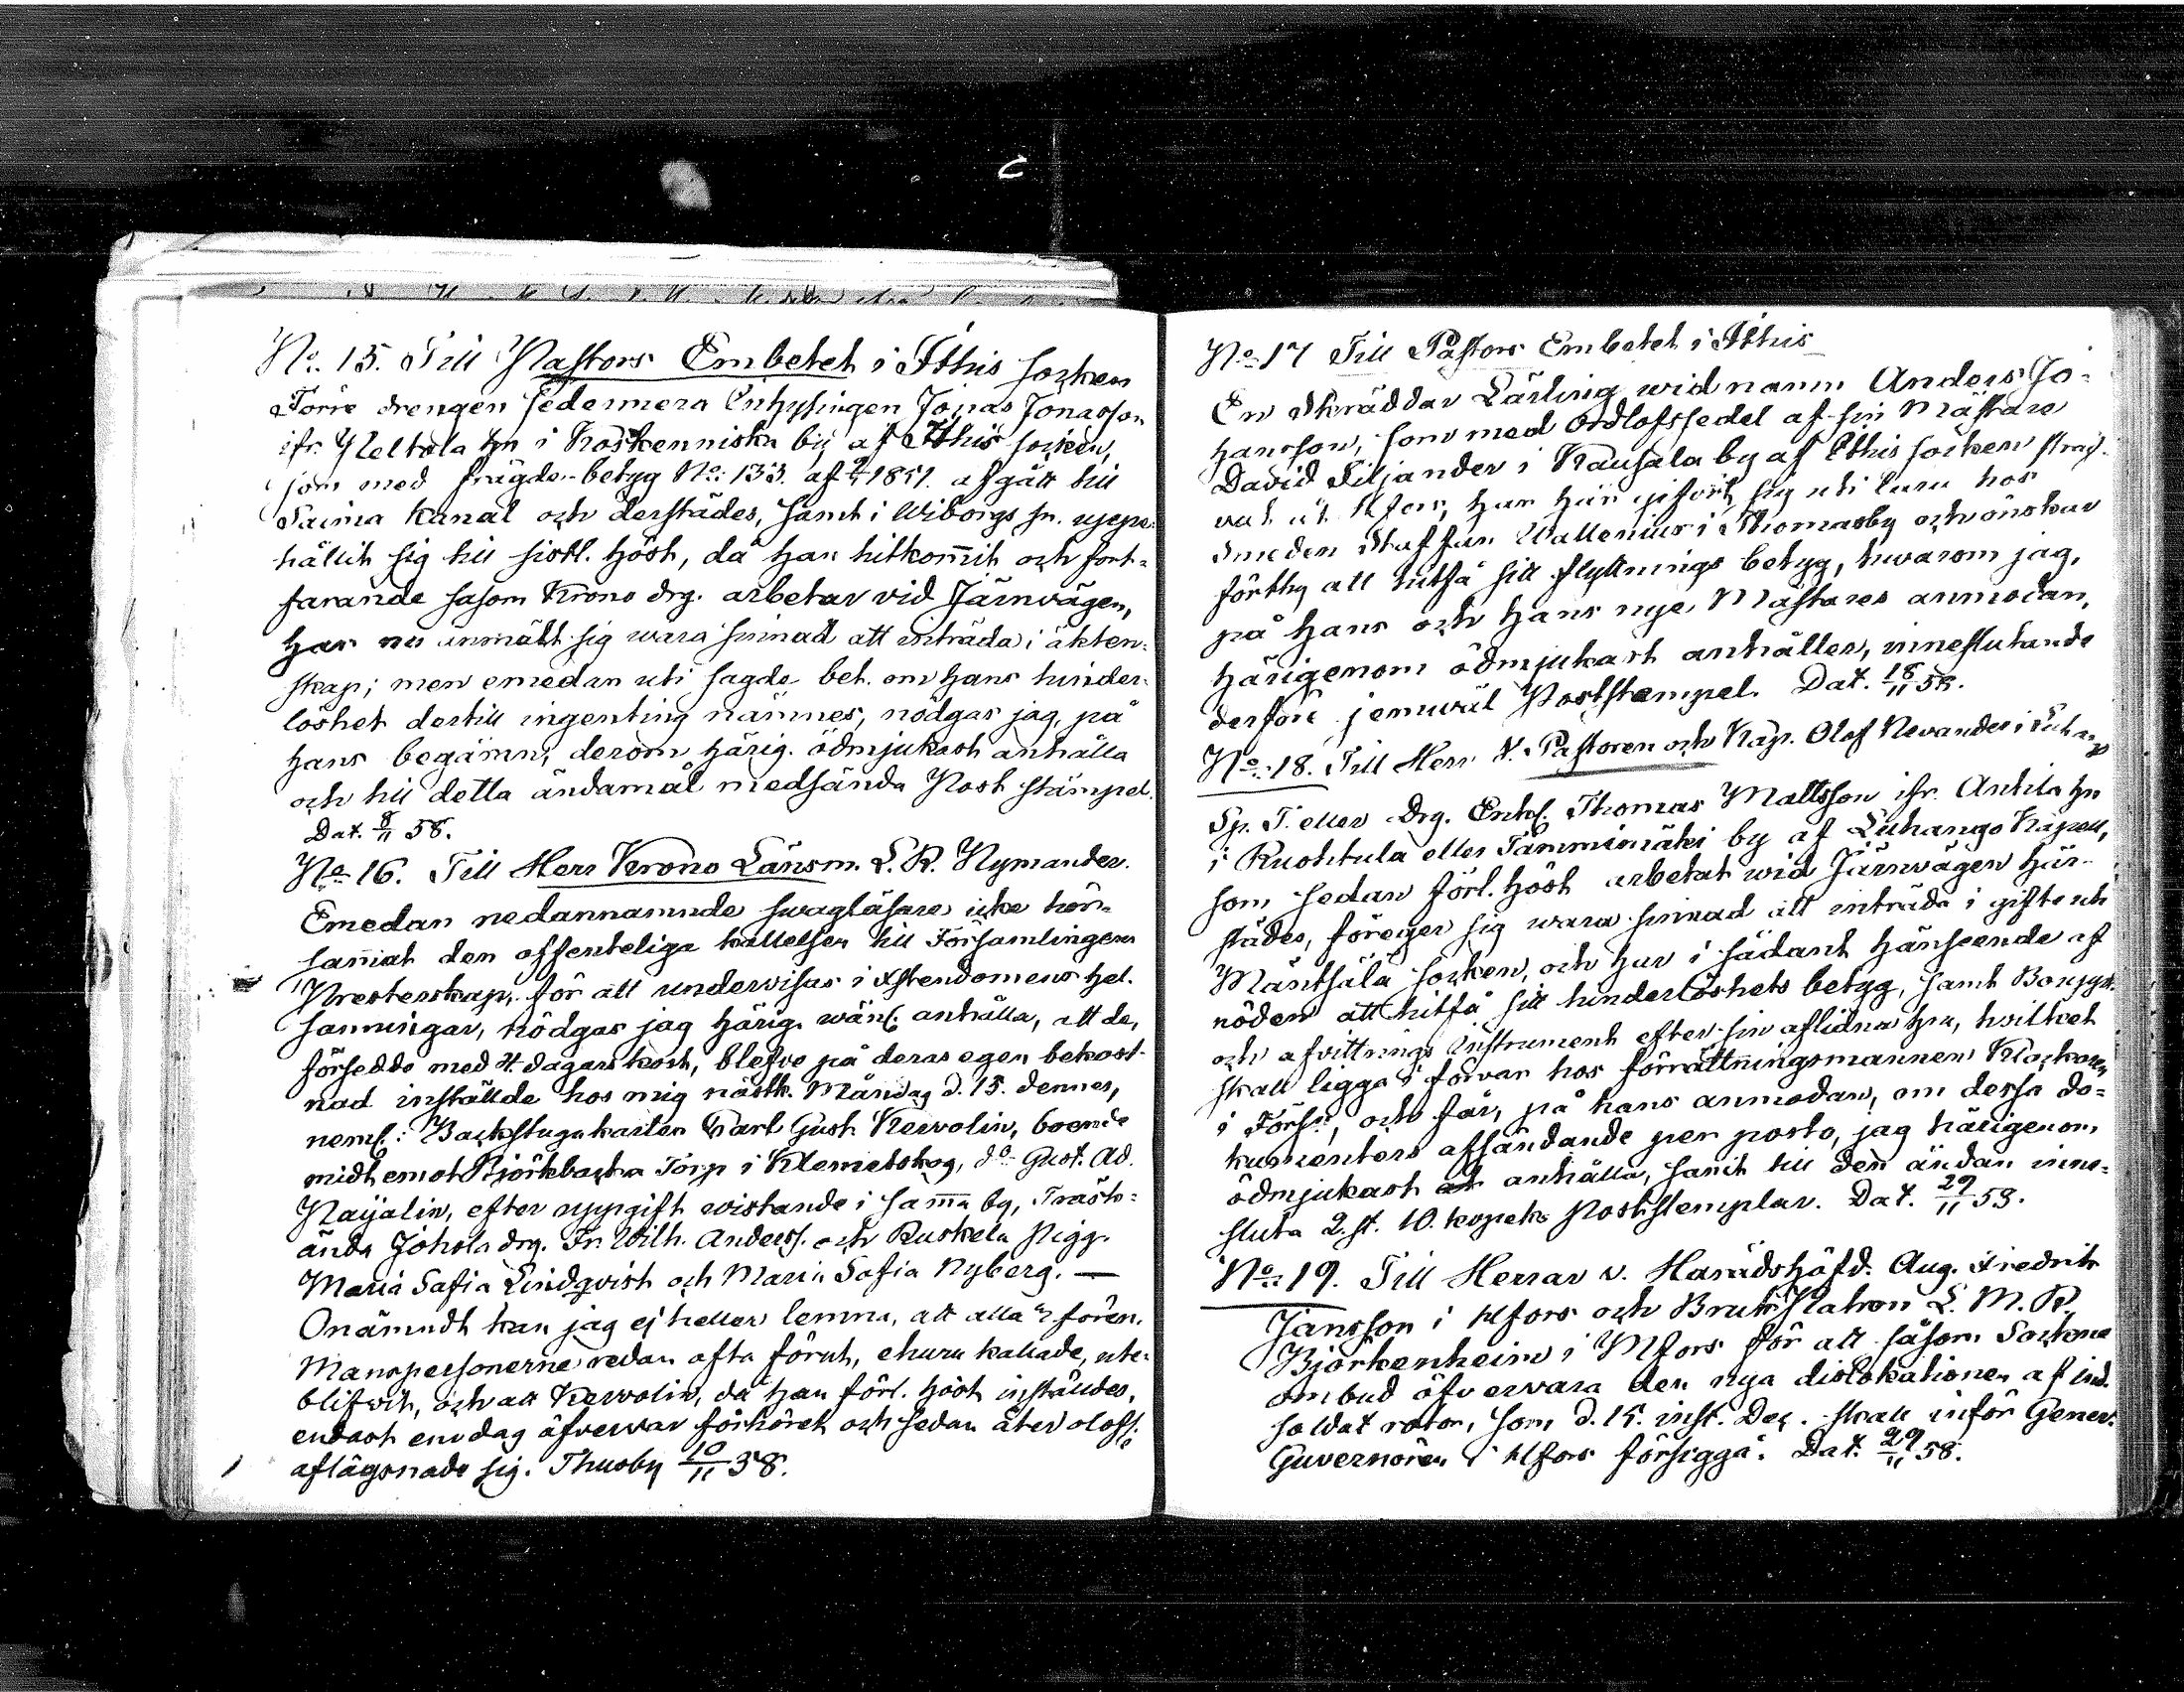 No. 15. Till Pastors Embetet i Itthis Socken
Förre drengen sedermera Inhysingen Jonas Jonasson
ifr. Peltola hn i Koskenniska by af Itthis socken,
som med frägde-betyg No: 133. af 1851. afgått till
Saima Kanal och derstädes, samt i Wiborgs sn. uppe-
hållit sig till sistl. höst, då han hitkommit och fort-
farande såsom Krono drg. arbetar vid Järnvägen,
har nu anmält sig wara sinnad att inträda i äkten-
skap; men emedan uti sagde bet. om hans hinder-
löshet dertill ingenting nämnes, nödgas jag, på
hans begäran, derom härig. ödmjukast anhålla
och till detta ändamål medsända Post stämpel.
Dat. 8/11 58.
No. 16. Till Herr Krono Länsm. L. R. Nymander.
Emedan nedannamnde swagläsare icke hör-
sammat den offenteliga kallelsen till Församlingens
Presterskap, för att underwisas i Xstendomens hel.
sanningar, nödgas jag härig. wänl. anhålla, att de,
försedde med 4. dagars kost, blefve på deras egen bekost-
nad inställde hos mig nästk. Måndag d. 15. dennes,
neml.: Backstugukarlen Karl Gust. Kerrolin, boende
midt emot Björkbacka Torp i Klemetskog, do Gust. Ad.
Naijalin, efter uppgift wistande i samma by, Träsk-
ända Johola drg. Fr. Wilh. Anderss. och Ruskela pig.
Maria Sofia Lindqvist och Maria Sofia Nyberg. —
Onämndt kan jag ej heller lemna, att alla fören.
Manspersonerne redan ofta förut, ehuru kallade, ute-
blifvit, och att Kerrolin, då han förl. höst inställdes,
endast en dag öfvervar förhöret och sedan åter olofl.
aflägsnade sig. Thusby 10/11 58.
No. 17 Till Pastors Embetet i Itthis
En Skräddar Lärling wid namn Anders Jo-
hansson, som med Ordlofssedel af sin Mästare
David Siljander i Kausala by af Itthis socken
åt Hfors, har här sig uti lära hos
Smeden Staffan Wallenius i Thomasby och önskar
förthy att hitfå sitt flyttnings betyg, hwarom jag,
på hans och hans nye Mästares anmodan,
härigenom ödmjukast anhåller, inneslutande
derföre jemwäl Poststempel. Dat. 18/11 58.
No. 18. Till Herr V. Pastoren och Kap. Olof Nevander i Luhango
Sp. T. eller Drg. Enkl. Thomas Mattsson ifr. Anttila hn
i Ruohtula eller Tammimäki by af Luhango Kapell,
som sedan förl. höst arbetat wid Järnwägen här-
städes, föregger sig wara sinnad att inträda i gifte uti
Mäntsälä socken, och har i sådant hänseende af
nöden att hitfå sitt hinderlöshets betyg, samt Bouppt.
och afvittrings instrument efter sin aflidna hu, hvilket
skall ligga i förvar hos förrättningsmannen Klockaren
i Förs., och får, på hans anmodan, om dessa do-
kumenters afsändande per posto, jag härigenom
ödmjukast anhålla, samt till den ändan inne-
sluta 2. st. 10. kopeks Poststemplar. Dat. 29/11 58.
No. 19. Till Herrar v. Häradshöfd. Aug. Fredrik
Jansson i Hfors och Bruks Patron L. M. R.
Björkenheim i Hfors för att såsom Sockne
ombud öfvervara den nya dislokationen af ind.
soldat rotar, som d. 15. inst. Dec. skall inför Gener.
Guvernören i Hfors försiggå. Dat. 29/11 58.